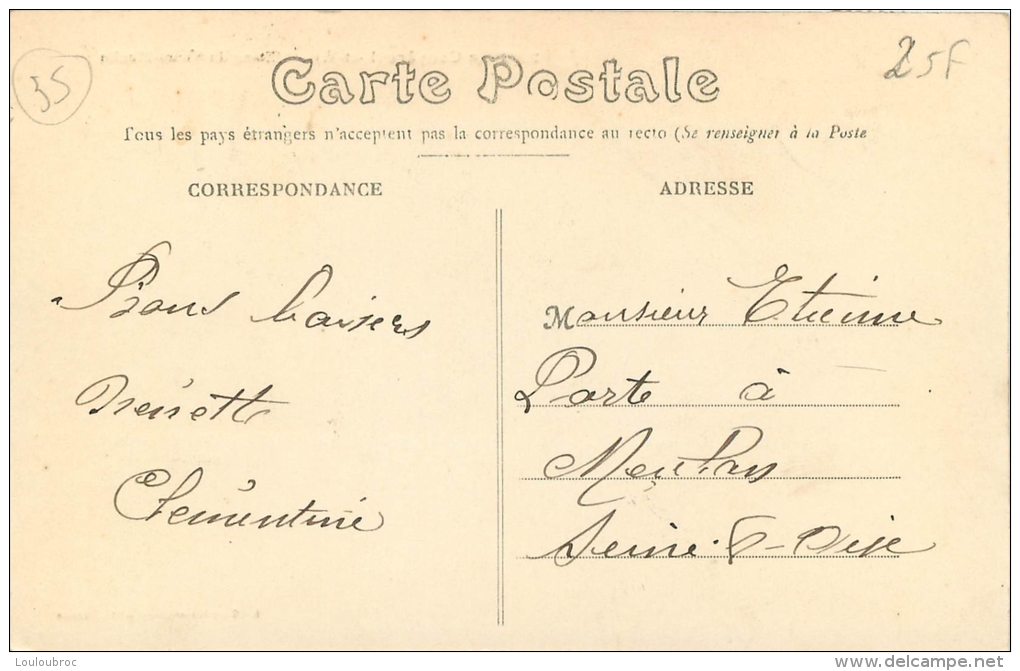 35
25F
Carte Postale
Tous les pays étrangers n'acceptent pas la correspondance au recto (Se renseigner à la Poste
CORRESPONDANCE
ADRESSE
Bons baisers
Clémentine
Monsieur Etienne
Porte à
Meulan
Seine-&-Oise
Louloubroc
www.delcampe.net